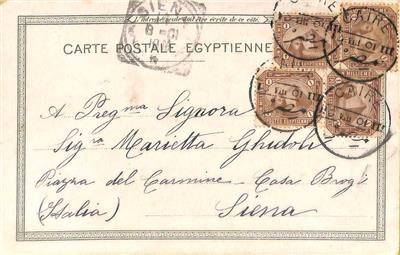 L'adresse seule doit être écrite de ce côté.
CARTE POSTALE EGYPTIENNE
SIENA
CAIRE
CAIRE
A Pregma Signora
Sigra Marietta Ghidoli
Piazza del Carmine - Casa Brogi
(Italia) Siena